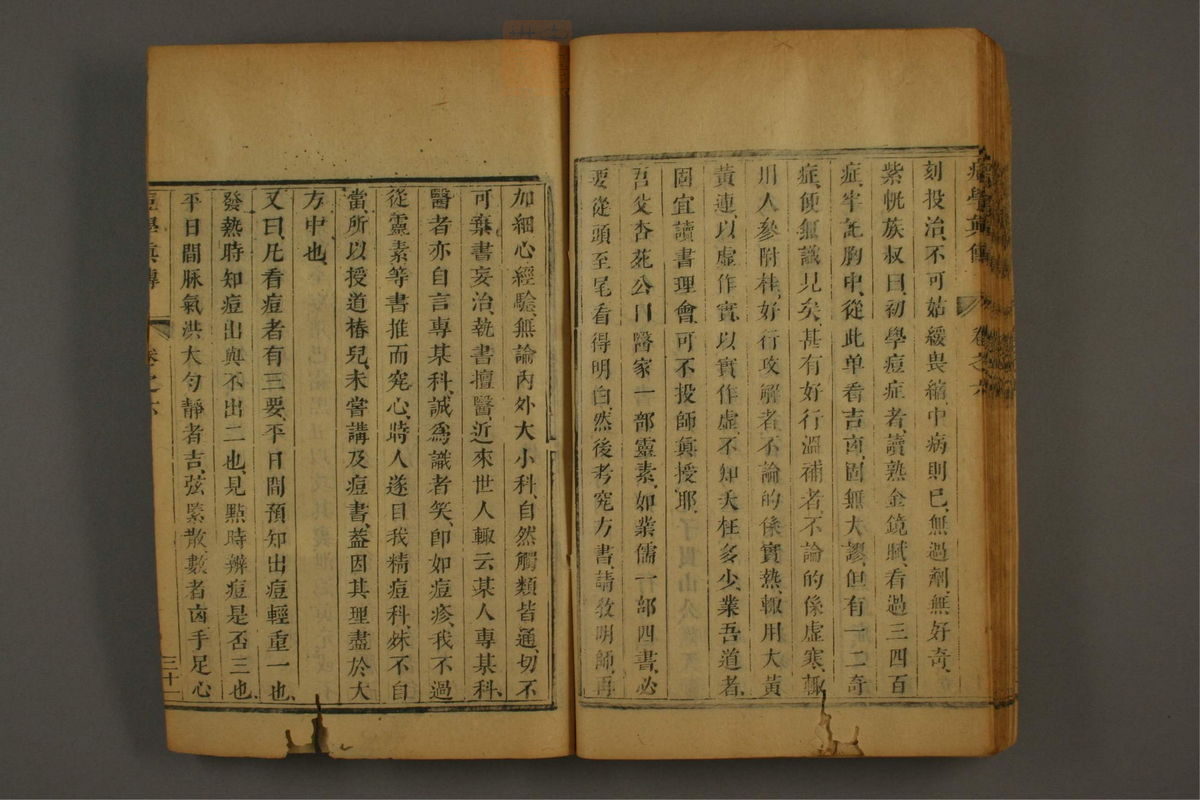 痘學真傳 卷之六
刻投治、不可姑緩畏縮中病則已、無過劑、無好奇、
紫恍族叔曰、初學痘症者、讀熟金鏡賦、看過三四百
症、牢記胸中、從此单看吉凶、固無大謬、但有一二奇
症、便無識見矣、甚有好行溫補者、不論的係虛寒、輙
用人參附桂、好行攻解者、不論的係實熱、輙用大黃
黃連、以虛作實、以實作虛、不知夭枉多少、業吾道者、
固宜讀書理會、可不投師眞授耶、
吾父杏苑公曰、醫家一部靈素、如業儒一部四書、必
要從頭至尾看得明白、然後考究方書、請教明師、再
加細心經驗、無論內外大小科、自然觸類皆通、切不
可棄書妄治、執書擅醫、近來世人輙云、某人專某科、
醫者亦自言專某科、誠爲識者笑、卽如痘疹、我不過
從靈素等書推而究心、時人遂目我精痘科、殊不自
當、所以授道椿兒、未嘗講及痘書、葢因其理盡於大
方中也、
又曰、凡看痘者有三要、平日間預知出痘輕重一也、
發熱時知痘出與不出二也、見點時辨痘是否三也、
平日間脉氣洪大勻靜者吉、弦緊散數者凶、手足心
痘學眞傳 卷之六 三十一